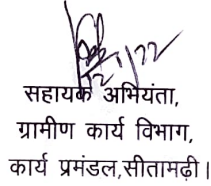 सहायक अभियंता,
ग्रामीण कार्य विभाग,
कार्य प्रमंडल,सीतामढ़ी।